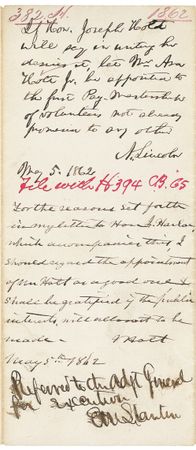 382 H. 1862
If Hon. Joseph Holt
will say in writing he
desires it, let Wm.
Holt Jr. be appointed to
the first Pay-Mastership
of volunteers not already
promised to any other
A. Lincoln
May 5. 1862
File with H 394 C.B. '65
For the reasons set forth
in my letter to Hon. J. Harlan,
which accompanies this I
should regard the appointment
of Mr Holt as a good one &
shall be gratified if the public
interests will allow it to be
made - J Holt
May 5th 1862
Referred to the Adjt General
for execution
E M Stanton